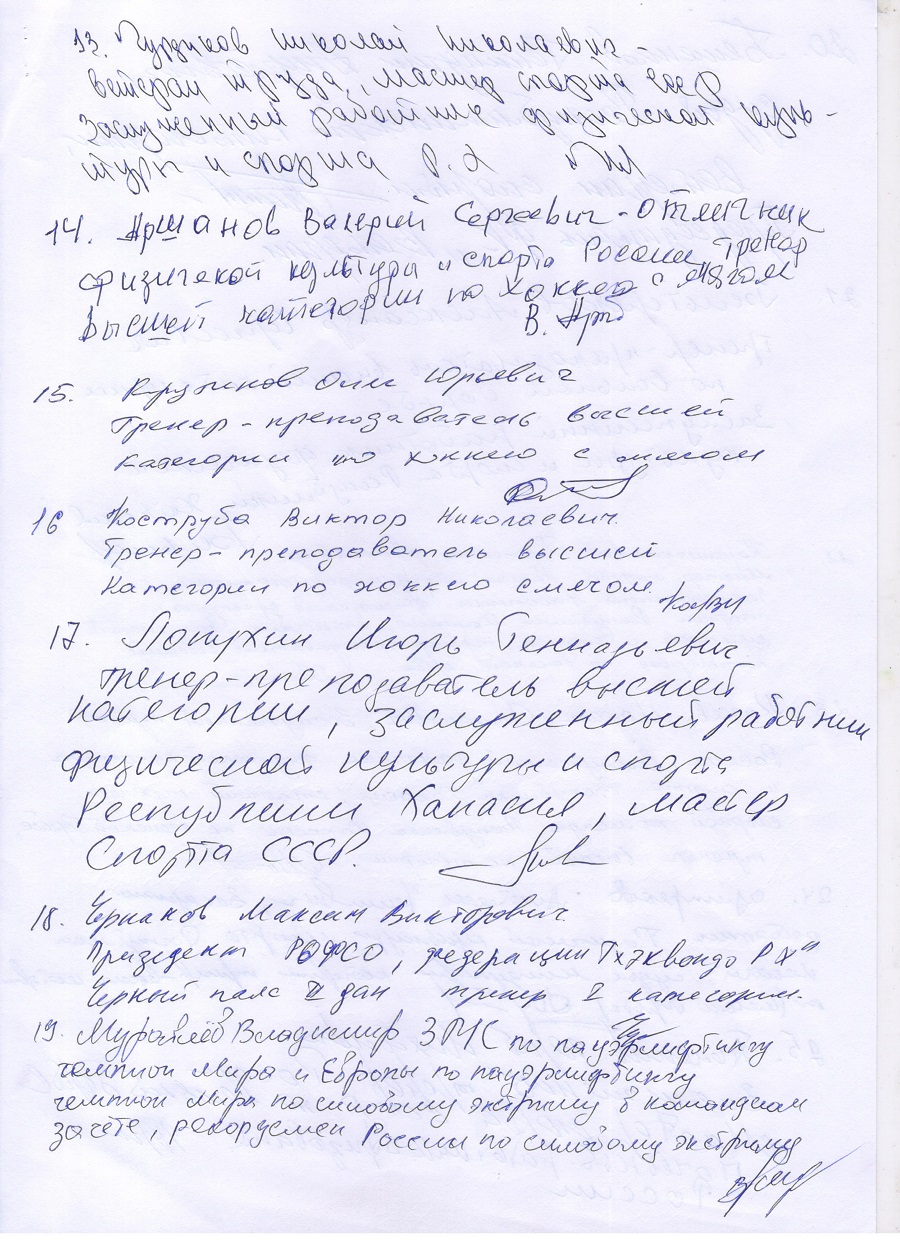 13. Николай Николаевич -
ветеран труда, мастер спорта СССР
Заслуженный работник физической куль-
туры и спорта Р.Х
14. Аршанов Валерий Сергеевич - отличник
физической культуры и спорта России, тренер
Высшей категории по хоккею с мячом
В.
15. Юрьевич
Тренер - преподаватель высшей
категории по хоккею с мячом
16 Коструба Виктор Николаевич.
Тренер - преподаватель высшей
категории по хоккею с мячом.
17. Лопухин Игорь Геннадьевич
тренер-преподаватель высшей
категории, заслуженный работник
физической культуры и спорта
Республики Хакасия, мастер
спорта СССР.
18. Максим Викторович
Президент РОФСО, федерации Тхэквондо РХ"
Черный пояс II дан тренер I категории.
19. Муравлёв Владимир ЗМС по пауэрлифтингу
чемпион Мира и Европы по пауэрлифтингу
чемпион Мира по силовому экстриму в командном
зачёте, рекордсмен России по силовому экстриму